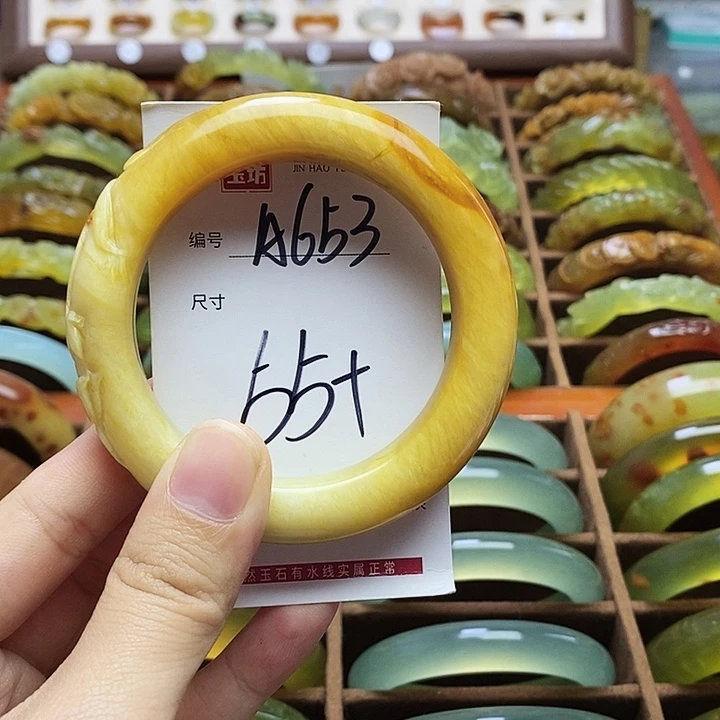 玉坊
JIN HAO
编号 A653
尺寸
55+
然玉石有水线实属正常